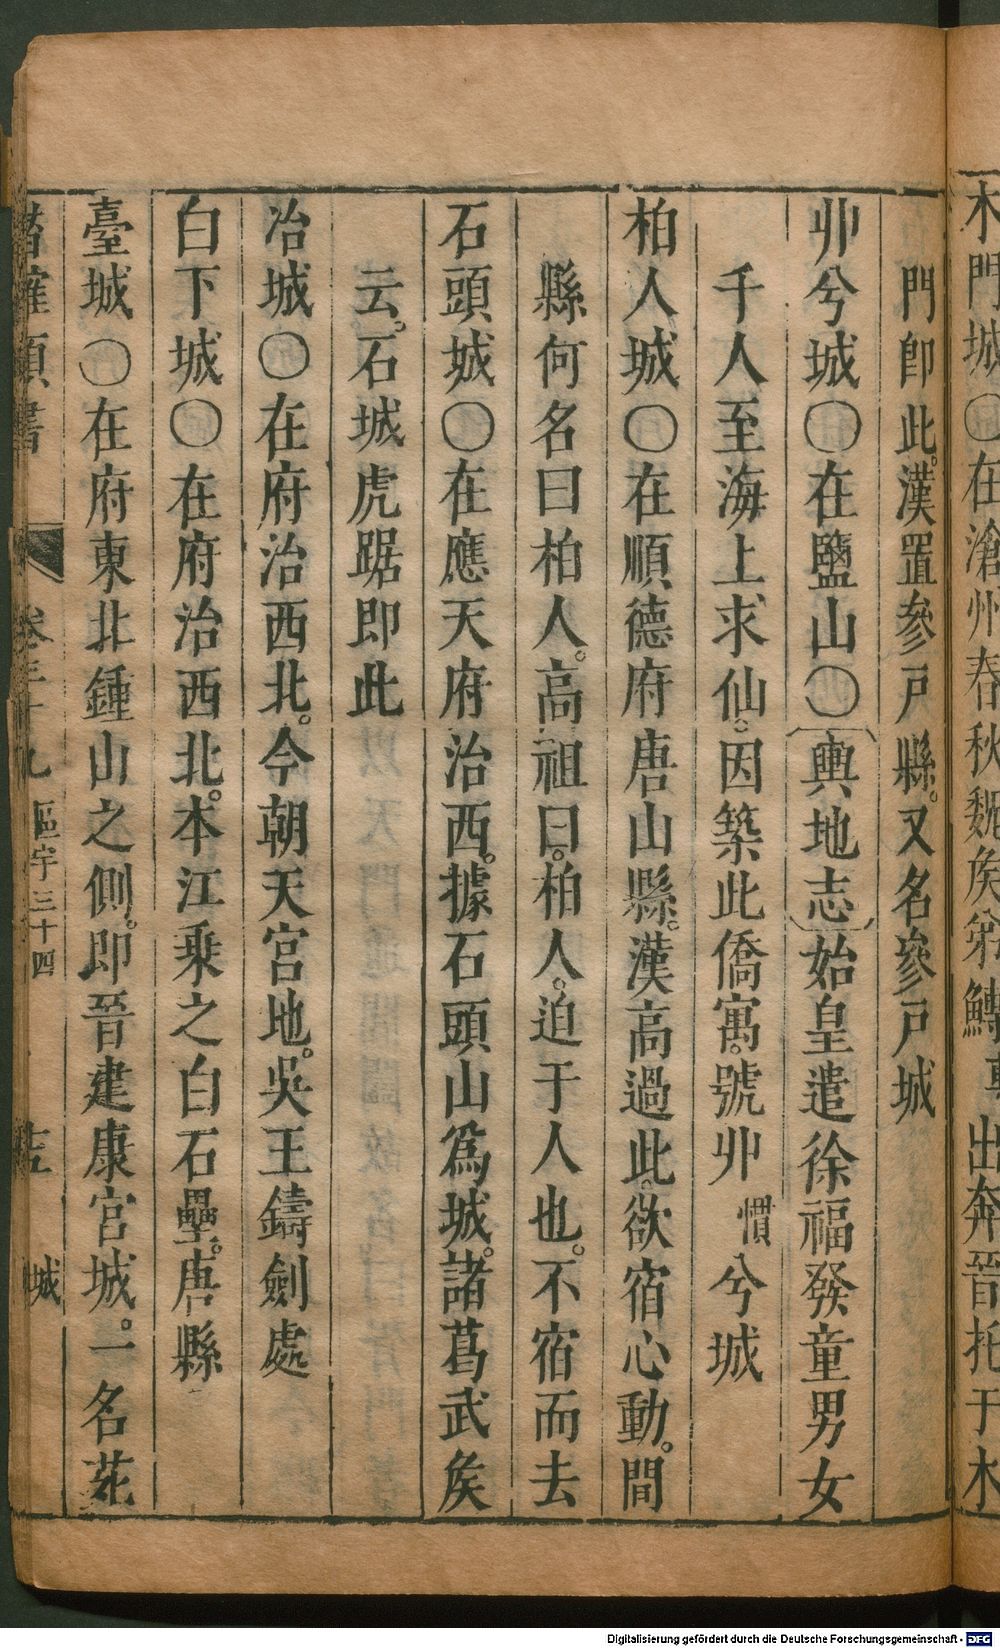 木門城○在滄州春秋魏矦弟鱄出奔晉托于木
門卽此。漢置參戶縣。又名參戶城
丱兮城○在鹽山○輿地志始皇遣徐福發童男女
千人至海上求仙。因築此僑寓。號丱慣兮城
柏人城○在順德府唐山縣。漢高過此。欲宿心動。問
縣何名曰柏人。高祖曰。柏人。迫于人也。不宿而去
石頭城○在應天府治西。據石頭山爲城。諸葛武矦
云。石城虎踞即此
冶城○在府治西北。今朝天宮地。吳王鑄劍處
白下城○在府治西北。本江乗之白石壘。唐縣
臺城○在府東北鍾山之側。即晉建康宮城。一名苑
潛確類書 卷三十九 區宇三十四 城
Digitalisierung gefördert durch die Deutsche Forschungsgemeinschaft - DFG